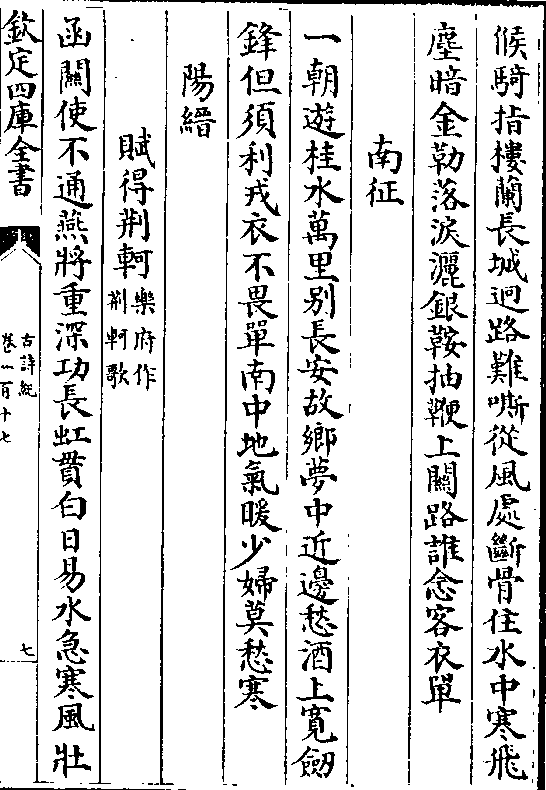 候騎指樓蘭長城迥路難嘶從風處斷骨住水中寒飛
塵暗金勒落淚灑銀鞍抽鞭上關路誰念客衣單
南征
一朝遊桂水萬里别長安故鄉夢中近邊愁酒上寛劒
鋒但須利戎衣不畏單南中地氣暖少婦莫愁寒
陽縉
賦得荆軻樂府作荆軻歌
函關使不通燕將重深功長虹貫白日易水急寒風壯
欽定四庫全書
古詩紀
卷一百十七
七